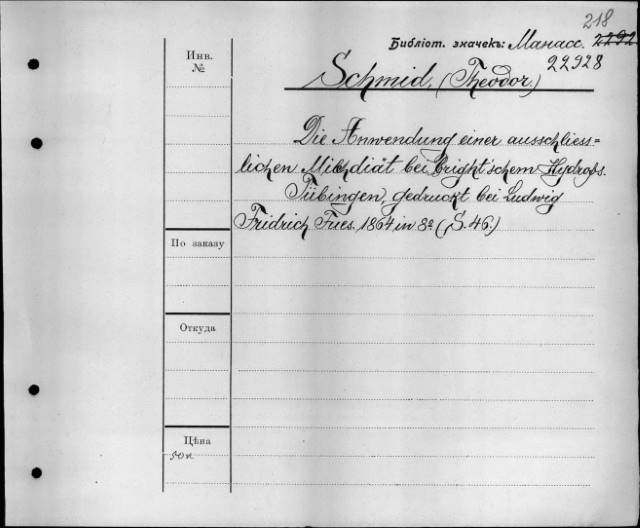 218
Библіот. значекъ: Манасс. 2292
22928
Инв.
№
Schmid, (Theodor.)
Die Anwendung einer ausschliess=
lichen Milchdiät bei Bright'schem Hydrops.
Tübingen, gedruckt bei Ludwig
Fridrich Fues. 1864 in 8º (S. 46.)
По заказу
Откуда
Цѣна
50к